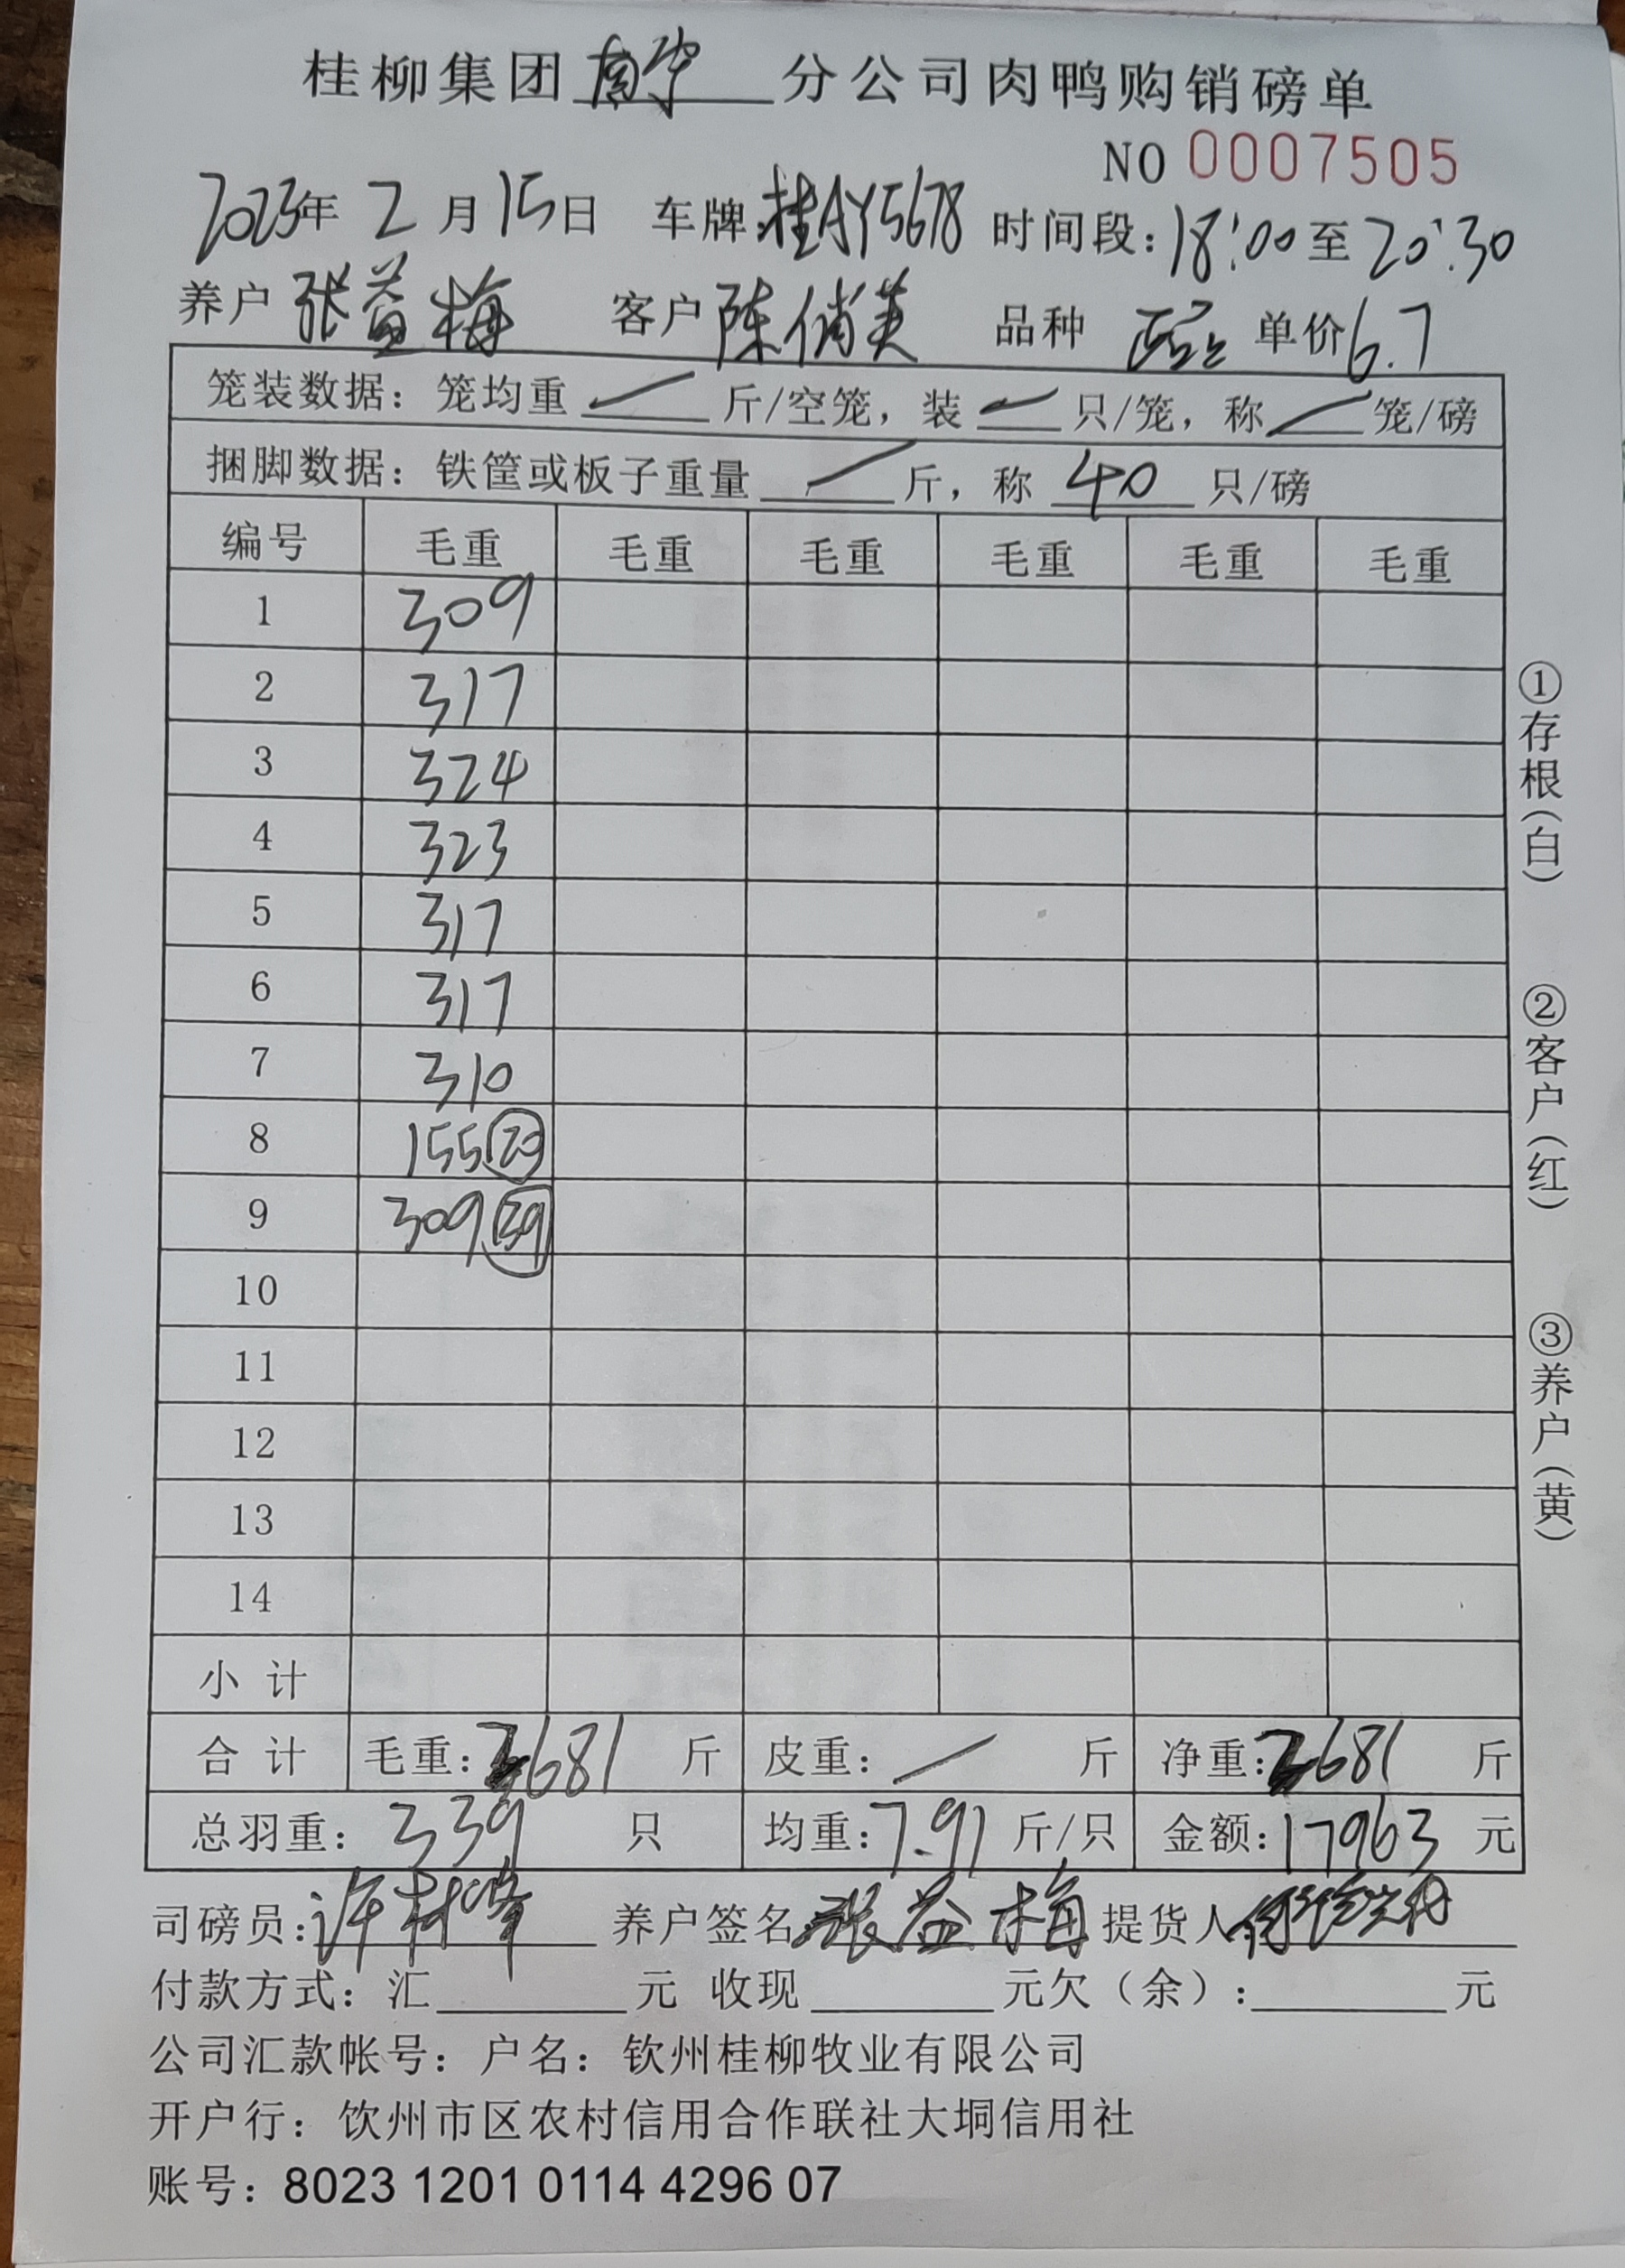 桂柳集团南宁分公司肉鸭购销磅单
NO 0007505
2023年 2 月 15 日 车牌:桂AY5678 时间段:18:00 至 20:30
养户 张益梅 客户 陈俏美 品种 单价 6.7
笼装数据:笼均重 / 斤/空笼,装 / 只/笼,称 / 笼/磅
捆脚数据:铁筐或板子重量 / 斤,称 40 只/磅
编号 毛重 毛重 毛重 毛重 毛重 毛重
1 309
2 317
3 324
4 323
5 317
6 317
7 310
8 155
9 309
10
11
12
13
14
小计
合计 毛重:2681 斤 皮重:/ 斤 净重:2681 斤
总羽重:339 只 均重:7.91 斤/只 金额:17963 元
司磅员:许林峰 养户签名:张益梅 提货人:
付款方式:汇 元 收现 元欠(余): 元
公司汇款帐号:户名:钦州桂柳牧业有限公司
开户行:饮州市区农村信用合作联社大垌信用社
账号:8023 1201 0114 4296 07
①存根(白)
②客户(红)
③养户(黄)